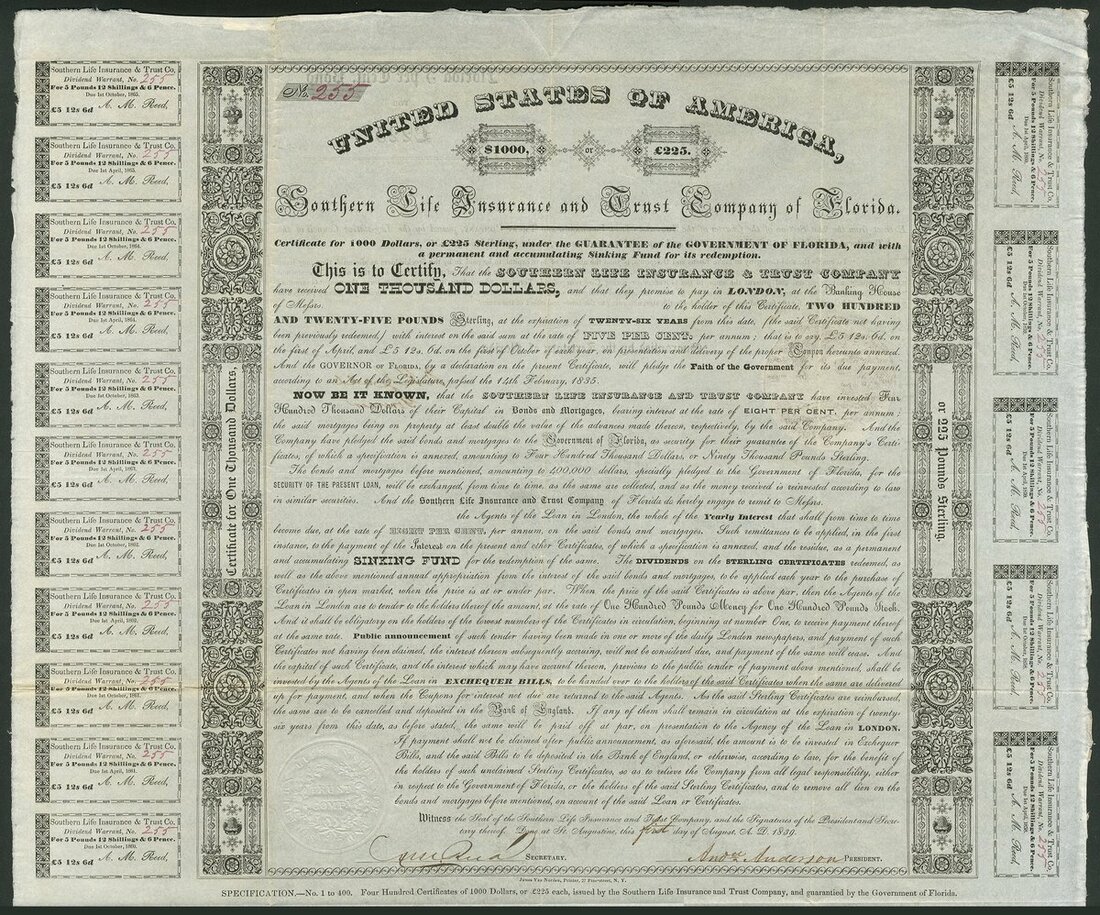 No. 255
UNITED STATES OF AMERICA,
$1000, or £225.
Southern Life Insurance and Trust Company of Florida.
Certificate for 1000 Dollars, or £225 Sterling, under the GUARANTEE of the GOVERNMENT OF FLORIDA, and with
a permanent and accumulating Sinking Fund for its redemption.
This is to Certify, That the SOUTHERN LIFE INSURANCE & TRUST COMPANY
have received ONE THOUSAND DOLLARS, and that they promise to pay in LONDON, at the Banking House
of Messrs. to the holder of this Certificate, TWO HUNDRED
AND TWENTY-FIVE POUNDS Sterling, at the expiration of TWENTY-SIX YEARS from this date, (the said Certificate not having
been previously redeemed,) with interest on the said sum at the rate of FIVE PER CENT. per annum; that is to say, £5 12s. 6d. on
the first of April, and £5 12s. 6d. on the first of October of each year, on presentation and delivery of the proper Coupon hereunto annexed.
And the GOVERNOR OF FLORIDA, by a declaration on the present Certificate, will pledge the Faith of the Government for its due payment,
according to an Act of the Legislature, passed the 14th February, 1835.
NOW BE IT KNOWN, that the SOUTHERN LIFE INSURANCE AND TRUST COMPANY have invested Four
Hundred Thousand Dollars of their Capital in Bonds and Mortgages, bearing interest at the rate of EIGHT PER CENT. per annum;
the said mortgages being on property at least double the value of the advances made thereon, respectively, by the said Company. And the
Company have pledged the said bonds and mortgages to the Government of Florida, as security for their guarantee of the Company's Certi-
ficates, of which a specification is annexed, amounting to Four Hundred Thousand Dollars, or Ninety Thousand Pounds Sterling.
The bonds and mortgages before mentioned, amounting to 400,000 dollars, specially pledged to the Government of Florida, for the
SECURITY OF THE PRESENT LOAN, will be exchanged, from time to time, as the same are collected, and as the money received is reinvested according to law
in similar securities. And the Southern Life Insurance and Trust Company of Florida do hereby engage to remit to Messrs.
the Agents of the Loan in London, the whole of the Yearly Interest that shall from time to time
become due, at the rate of EIGHT PER CENT. per annum, on the said bonds and mortgages. Such remittances to be applied, in the first
instance, to the payment of the Interest on the present and other Certificates, of which a specification is annexed, and the residue, as a permanent
and accumulating SINKING FUND for the redemption of the same. The DIVIDENDS on the STERLING CERTIFICATES redeemed, as
well as the above mentioned annual appropriation from the interest of the said bonds and mortgages, to be applied each year to the purchase of
Certificates in open market, when the price is at or under par. When the price of the said Certificates is above par, then the Agents of the
Loan in London are to tender to the holders thereof the amount, at the rate of One Hundred Pounds Money for One Hundred Pounds Stock.
And it shall be obligatory on the holders of the lowest numbers of the Certificates in circulation, beginning at number One, to receive payment thereof
at the same rate. Public announcement of such tender having been made in one or more of the daily London newspapers, and payment of such
Certificates not having been claimed, the interest thereon subsequently accruing, will not be considered due, and payment of the same will cease. And
the capital of such Certificate, and the interest which may have accrued thereon, previous to the public tender of payment above mentioned, shall be
invested by the Agents of the Loan in EXCHEQUER BILLS, to be handed over to the holders of the said Certificates when the same are delivered
up for payment, and when the Coupons for interest not due are returned to the said Agents. As the said Sterling Certificates are reimbursed,
the same are to be cancelled and deposited in the Bank of England. If any of them shall remain in circulation at the expiration of twenty-
six years from this date, as before stated, the same will be paid off at par, on presentation to the Agency of the Loan in LONDON.
If payment shall not be claimed after public announcement, as aforesaid, the amount is to be invested in Exchequer
Bills, and the said Bills to be deposited in the Bank of England, or otherwise, according to law, for the benefit of
the holders of such unclaimed Sterling Certificates, so as to relieve the Company from all legal responsibility, either
in respect to the Government of Florida, or the holders of the said Sterling Certificates, and to remove all lien on the
bonds and mortgages before mentioned, on account of the said Loan or Certificates.
Witness the Seal of the Southern Life Insurance and Trust Company, and the Signatures of the President and Secre-
tary thereof. Done at St. Augustine, this first day of August, A. D. 1839.
SECRETARY. And. Anderson PRESIDENT.
James Van Norden, Printer, 27 Pine-street, N. Y.
SPECIFICATION.—No. 1 to 400. Four Hundred Certificates of 1000 Dollars, or £225 each, issued by the Southern Life Insurance and Trust Company, and guarantied by the Government of Florida.
Certificate for One Thousand Dollars,
or 225 Pounds Sterling.
Southern Life Insurance & Trust Co.
Dividend Warrant, No. 255
For 5 Pounds 12 Shillings & 6 Pence.
Due 1st October, 1865.
£5 12s 6d A. M. Reed,
Southern Life Insurance & Trust Co.
Dividend Warrant, No. 255
For 5 Pounds 12 Shillings & 6 Pence.
Due 1st April, 1865.
£5 12s 6d A. M. Reed,
Southern Life Insurance & Trust Co.
Dividend Warrant, No. 255
For 5 Pounds 12 Shillings & 6 Pence.
Due 1st October, 1864.
£5 12s 6d A. M. Reed,
Southern Life Insurance & Trust Co.
Dividend Warrant, No. 255
For 5 Pounds 12 Shillings & 6 Pence.
Due 1st April, 1864.
£5 12s 6d A. M. Reed,
Southern Life Insurance & Trust Co.
Dividend Warrant, No. 255
For 5 Pounds 12 Shillings & 6 Pence.
Due 1st October, 1863.
£5 12s 6d A. M. Reed,
Southern Life Insurance & Trust Co.
Dividend Warrant, No. 255
For 5 Pounds 12 Shillings & 6 Pence.
Due 1st April, 1863.
£5 12s 6d A. M. Reed,
Southern Life Insurance & Trust Co.
Dividend Warrant, No. 255
For 5 Pounds 12 Shillings & 6 Pence.
Due 1st October, 1862.
£5 12s 6d A. M. Reed,
Southern Life Insurance & Trust Co.
Dividend Warrant, No. 255
For 5 Pounds 12 Shillings & 6 Pence.
Due 1st April, 1862.
£5 12s 6d A. M. Reed,
Southern Life Insurance & Trust Co.
Dividend Warrant, No. 255
For 5 Pounds 12 Shillings & 6 Pence.
Due 1st October, 1861.
£5 12s 6d A. M. Reed,
Southern Life Insurance & Trust Co.
Dividend Warrant, No. 255
For 5 Pounds 12 Shillings & 6 Pence.
Due 1st April, 1861.
£5 12s 6d A. M. Reed,
Southern Life Insurance & Trust Co.
Dividend Warrant, No. 255
For 5 Pounds 12 Shillings & 6 Pence.
Due 1st October, 1860.
£5 12s 6d A. M. Reed,
Southern Life Insurance & Trust Co.
Dividend Warrant, No. 255
For 5 Pounds 12 Shillings & 6 Pence.
£5 12s 6d A. M. Reed,
Southern Life Insurance & Trust Co.
Dividend Warrant, No. 255
For 5 Pounds 12 Shillings & 6 Pence.
£5 12s 6d A. M. Reed,
Southern Life Insurance & Trust Co.
Dividend Warrant, No. 255
For 5 Pounds 12 Shillings & 6 Pence.
£5 12s 6d A. M. Reed,
Southern Life Insurance & Trust Co.
Dividend Warrant, No. 255
For 5 Pounds 12 Shillings & 6 Pence.
£5 12s 6d A. M. Reed,
Southern Life Insurance & Trust Co.
Dividend Warrant, No. 255
For 5 Pounds 12 Shillings & 6 Pence.
£5 12s 6d A. M. Reed,